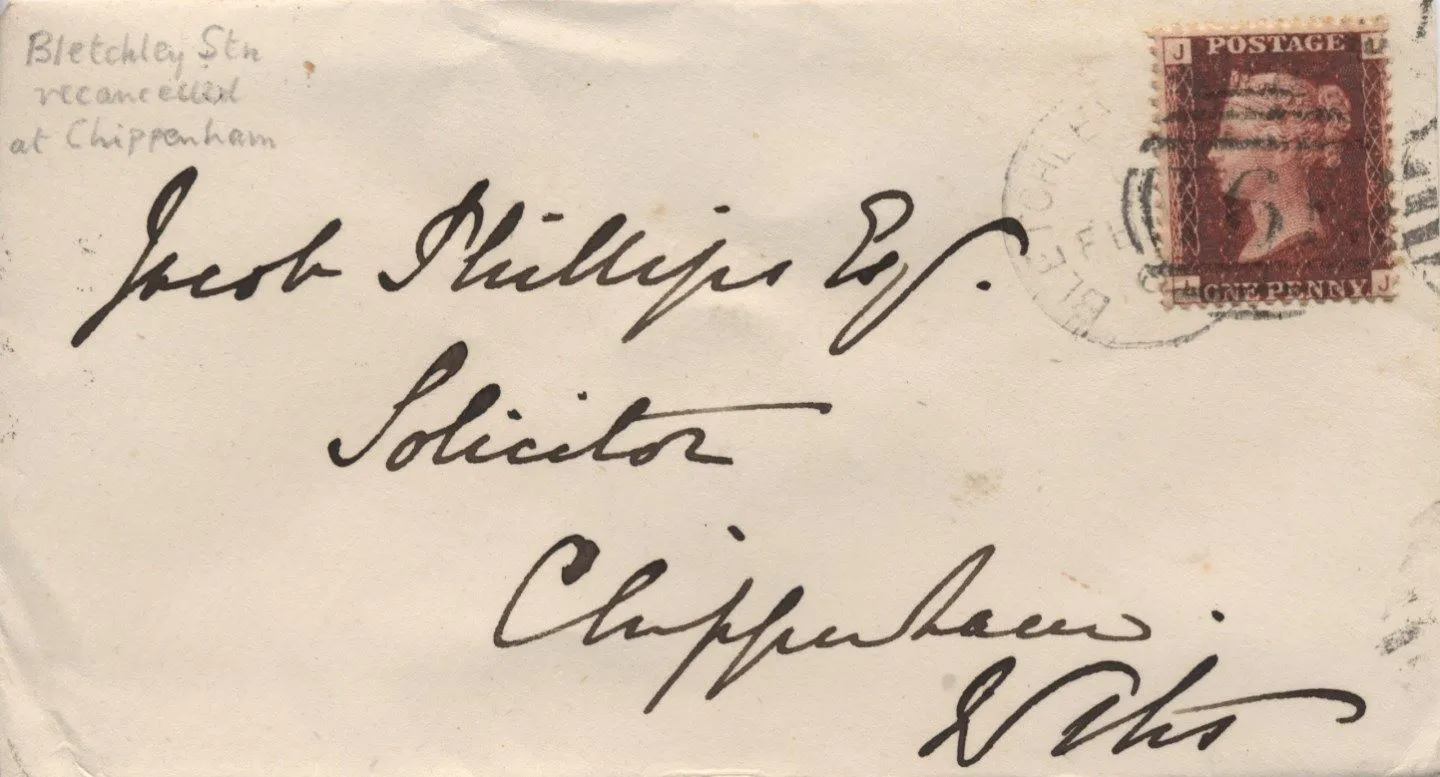 Bletchley Stn
recancelled
at Chippenham
J POSTAGE L
BLETCHLEY
FE
6
L ONE PENNY J
Jacob Phillips Esq.
Solicitor
Chippenham.
Wilts